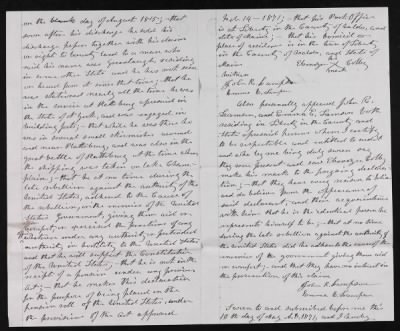 on the blank day of August 1815; that
soon after his discharge he sold his
discharge paper together with his claim
or right to bounty land to a man who
said his name was Greenleaf, residing
in some other State and he has not seen
or heard from it since that time; that he
was stationed nearly all the time he was
in the service at Plattsburg aforesaid in
the State of New York, and was engaged in
building forts; that while he was there he
was in several small skirmishes around
and near Plattsburg, and was also in the
great battle of Plattsburg at the time when
the shipping was taken on Lake Cham-
plain; that he at no time during the
late rebellion against the authority of the
United States, adhered to the cause of
the rebellion, or the enemies of the United
States Government, giving them aid or
comfort, or exercised the functions of any
office under any authority, or pretended
authority, in hostility to the United States
and that he will support the Constitution
of the United States; that he is not in the
receipt of a pension under any previous
act; that he makes this declaration
for the purpose of being placed on the
pension roll of the United States, under
the provision of the act approved
Feb. 14 - 1871; that his Post Office
is at Liberty in the County of Waldo, and
State of Maine; that his domicil or
place of residence is in the town of Liberty,
in the County of Waldo, and State of
Maine
Ebenezer Colby
mark
Witness
John R. Lampson
Emma E. Lampson
Also personally appeared John R.
Lampson, and Emma E. Lampson both
residing in Liberty in the County and
State aforesaid persons whom I certify
to be respectable and entitled to credit
and who by me being duly sworn say
they were present and saw Ebenezer Colby
make his mark to the foregoing declara-
tion; that they have every reason to believe
and do believe from the appearance of
said declarant, and their acquaintance
with him that he is the identical person he
represents himself to be; that at no time
during the late rebellion against the authority of
the United States did he adhere to the cause of the
enemies of the government giving them aid
or comfort; and that they have no interest in
the prosecution of this claim.
John R. Lampson
Emma E. Lampson
Sworn to and subscribed before me this
10th day of A.D. 1871, and I hereby